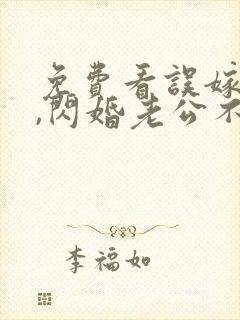 免費看誤嫁
,閃婚老公不
李福如